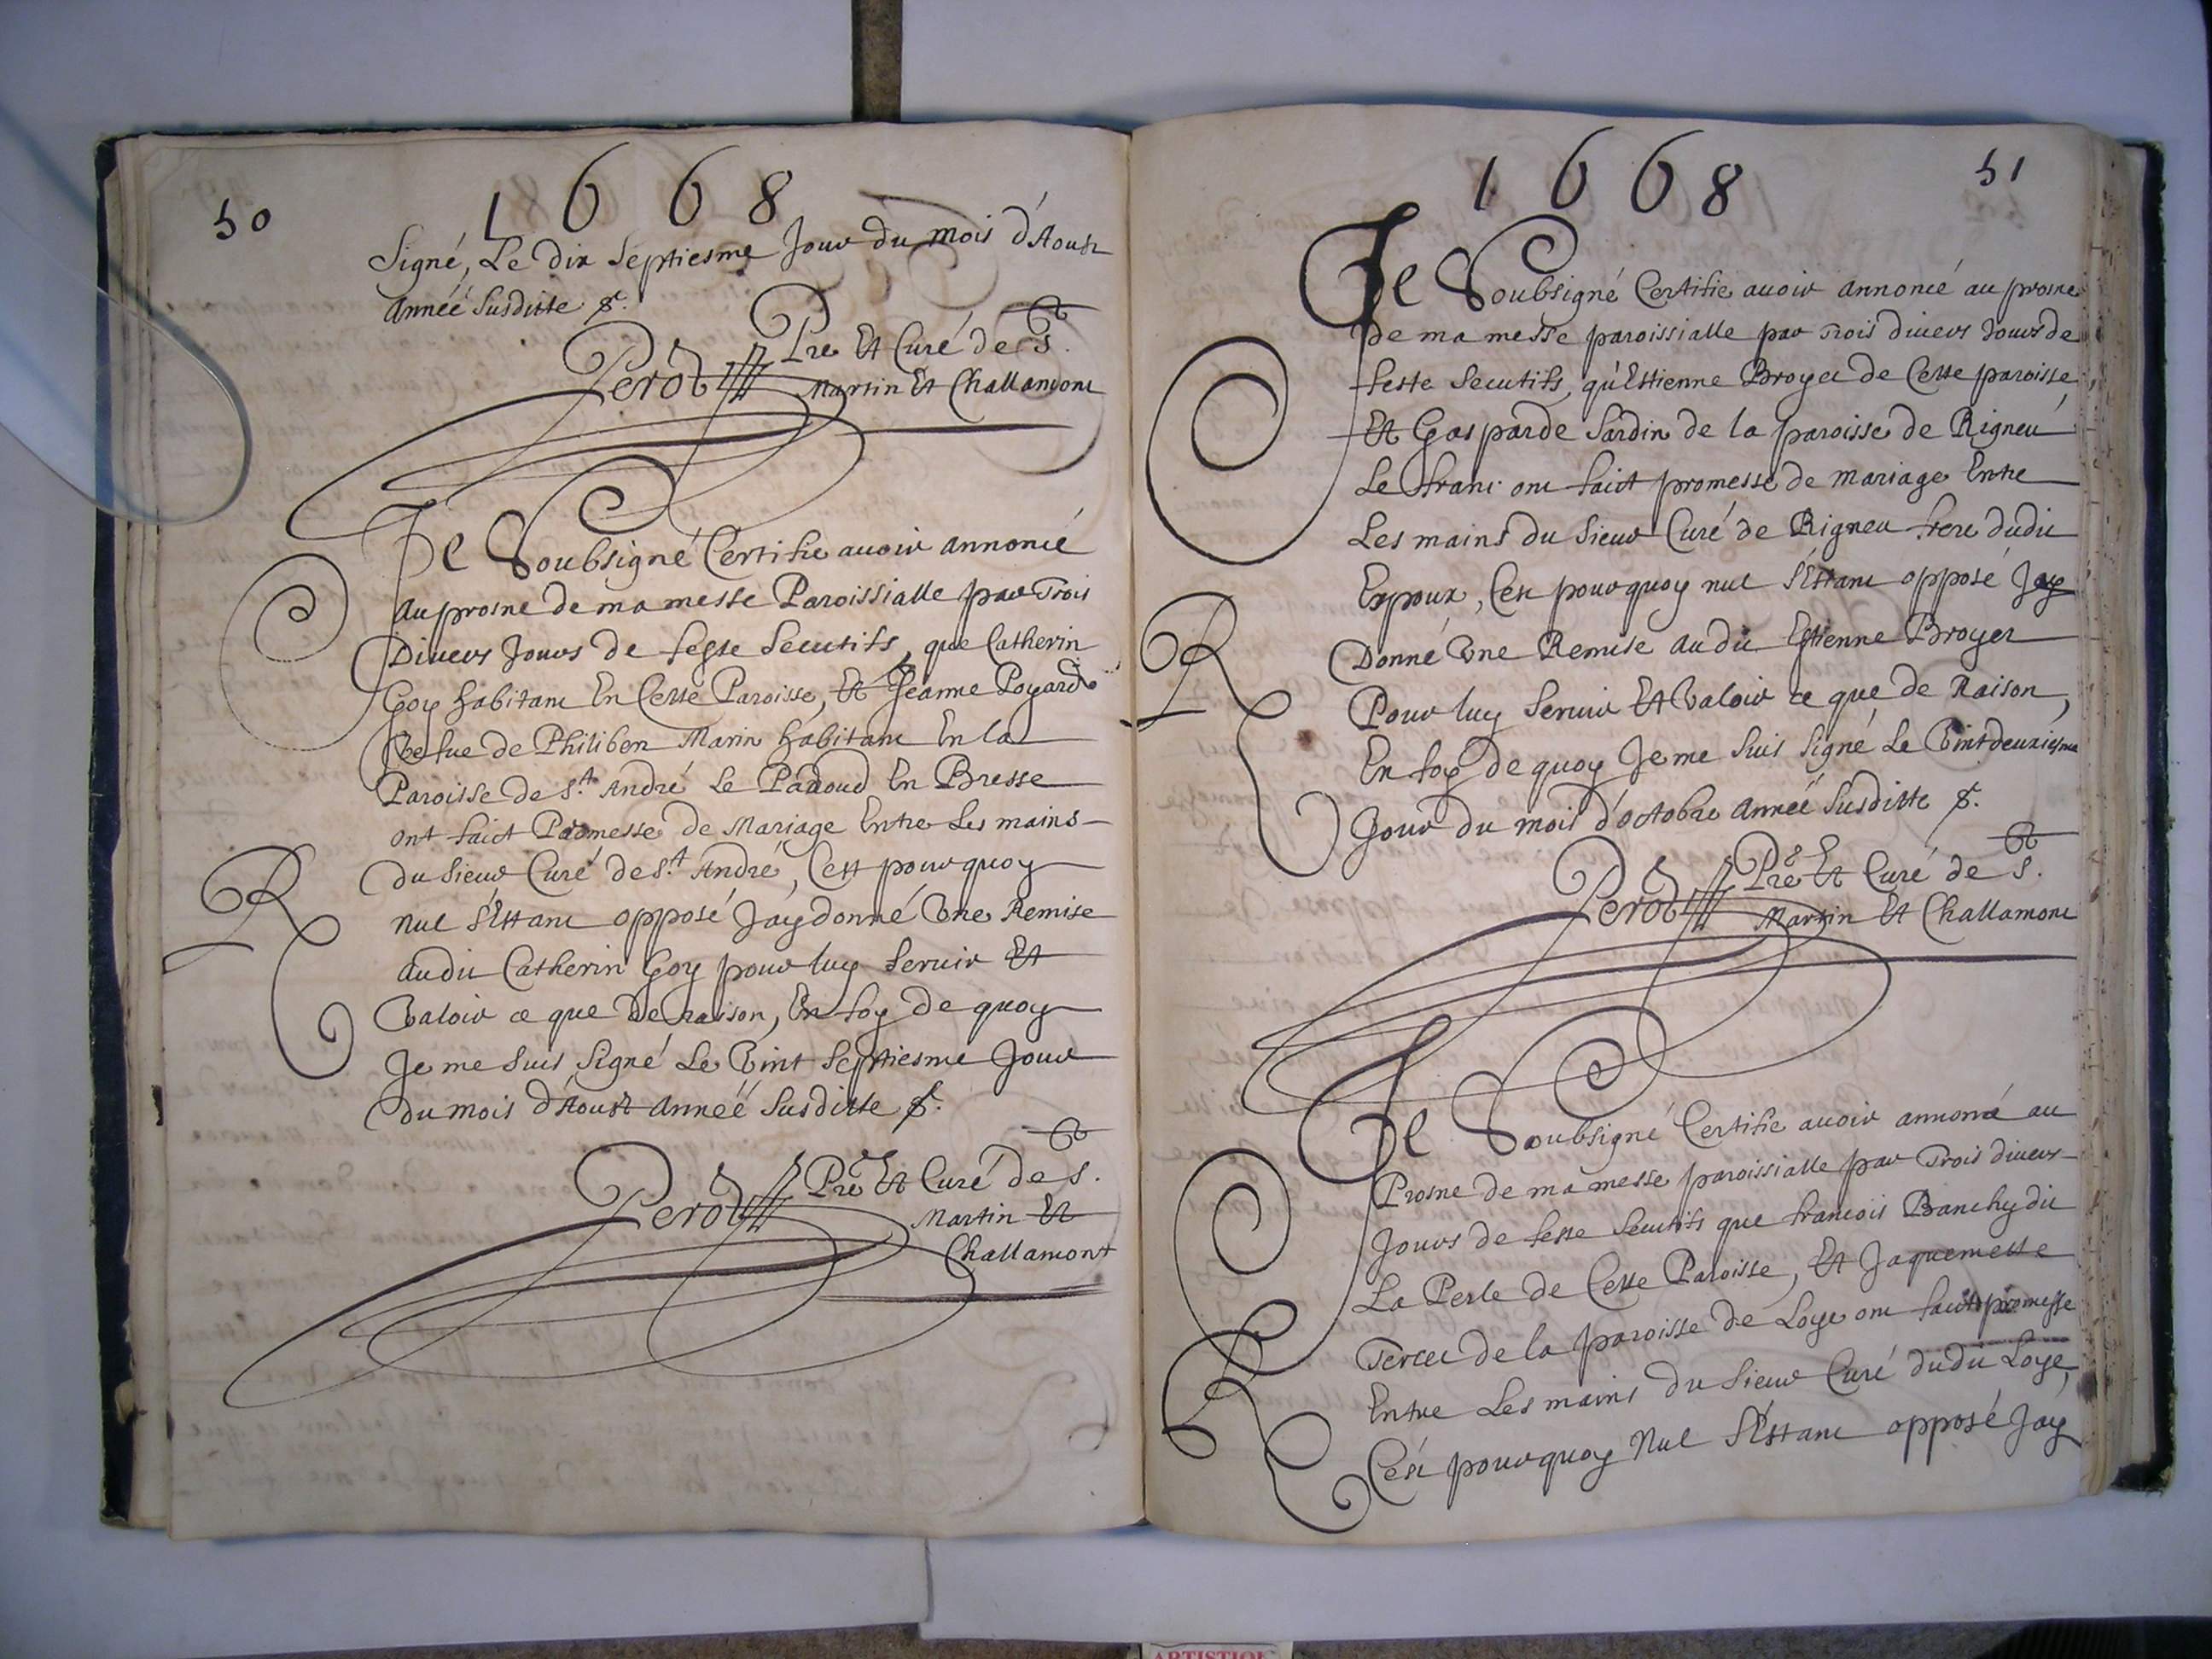 50
1668
Signé, Le dix septiesme Jour du mois d'Aoust
Année Susditte &.
Perod Pre Et Curé de St.
Martin Et Challamont
Je Soubsigné Certifie avoir annoncé
au prosne de ma messe Paroissialle par Trois
Divers Jours de feste Secutifs, que Catherin
Goy habitant En Cette Paroisse, Et Jeanne Poyard
Vefue de Philibert Marin habitant En la
Paroisse de St. André Le Panoud En Bresse
ont faict Promesse de Mariage Entre Les mains
du Sieur Curé de St. André, C'est pourquoy
nul s'Estant opposé J'ay donné Une Remise
audit Catherin Goy pour luy Servir Et
Valoir ce que De raison, En foy de quoy
Je me suis Signé Le Vint Septiesme Jour
du mois d'Aoust année susditte &.
Perod Pre Et Curé de St.
Martin Et
Challamont
51
1668
Je Soubsigné Certifie avoir annoncé au prosne
de ma messe paroissialle par Trois divers Jours de
feste Secutifs, qu'Estienne Broyer de Cette paroisse,
Et Gasparde Sardin de la paroisse de Rigneu
Le franc ont faict promesse de mariage Entre
Les mains du Sieur Curé de Rigneu frere dudit
Expoux, C'est pourquoy nul s'Estant opposé J'ay
Donné Une Remise audit Estienne Broyer
Pour luy Servir Et Valoir ce que de Raison,
En foy de quoy Je me suis Signé Le Vint deuxiesme
Jour du mois d'octobre année Susditte &.
Perod Pre Et Curé de St.
Martin Et Challamont
Je Soubsigné Certifie avoir annoncé au
Prosne de ma messe paroissialle par Trois divers
Jours de feste Secutifs que francois Banchy dit
La Perle de Cette Paroisse, Et Jaquemette
Tercer de la paroisse de Loye ont faict promesse
Entre Les mains du Sieur Curé dudit Loye,
C'est pourquoy Nul s'Estant opposé J'ay